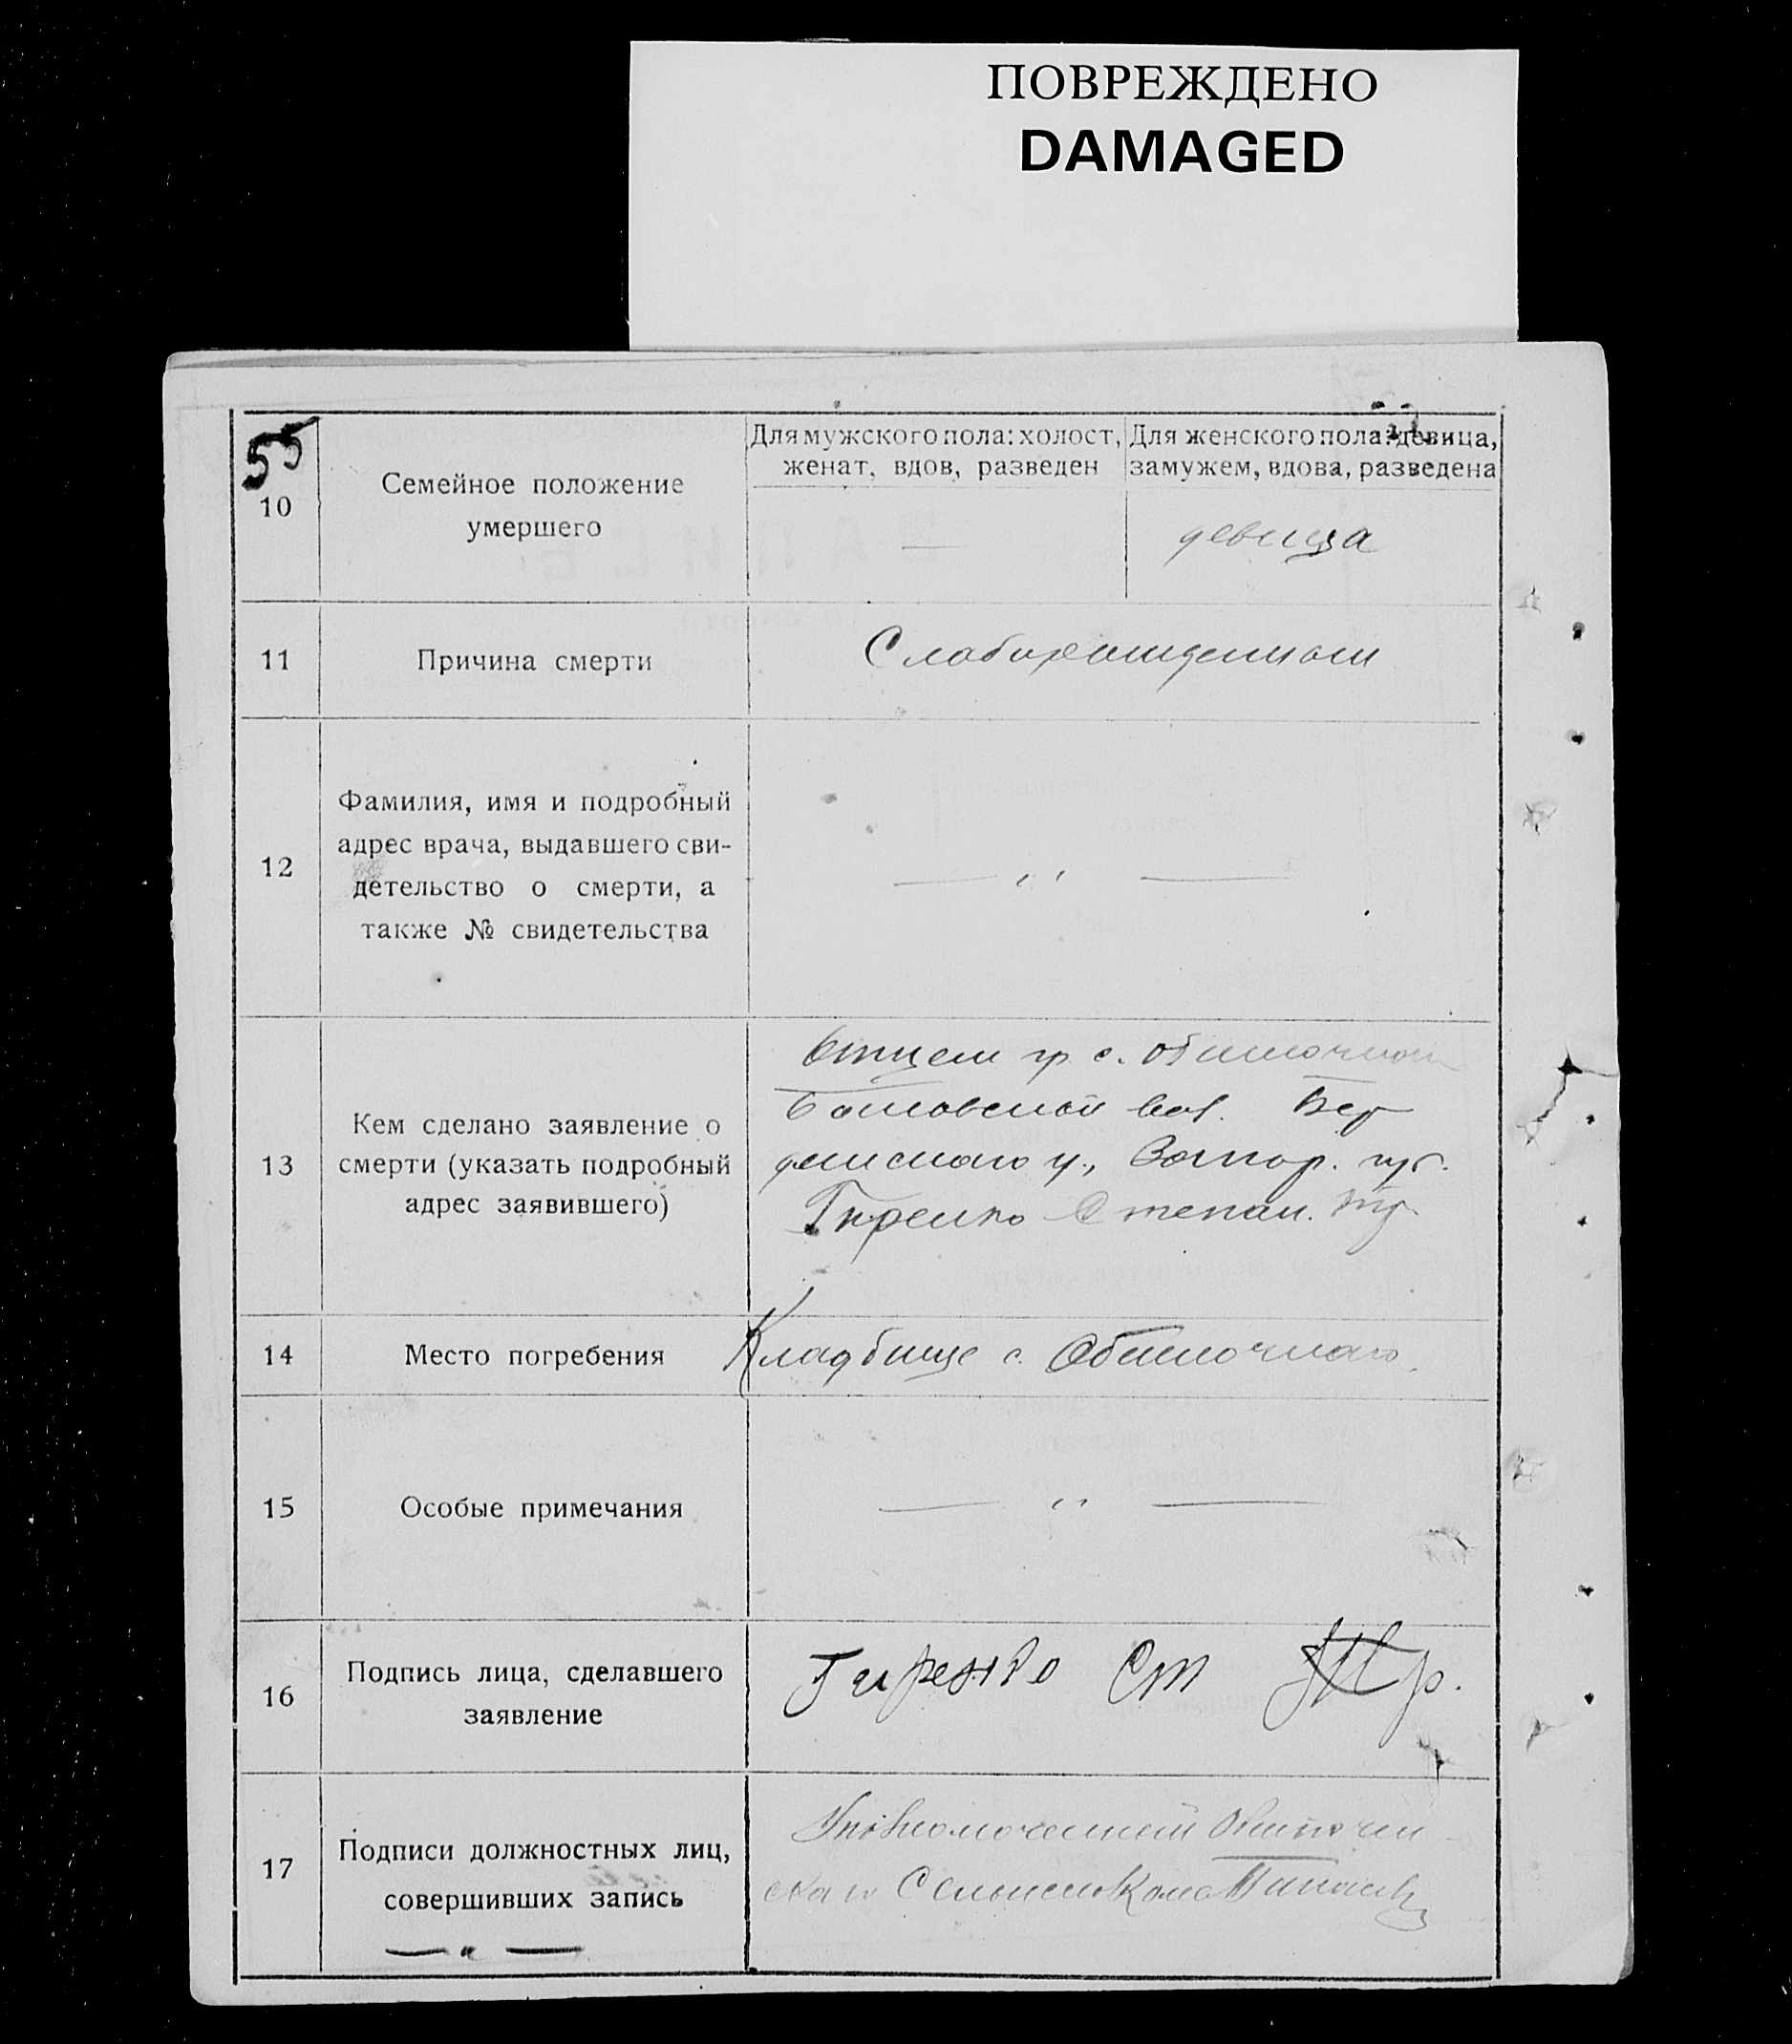 ПОВРЕЖДЕНО
DAMAGED
55
10
Семейное положение
умершего
Для мужского пола: холост,
женат, вдов, разведен
Для женского пола: девица,
замужем, вдова, разведена
—
девица
11
Причина смерти
12
Фамилия, имя и подробный
адрес врача, выдавшего сви-
детельство о смерти, а
также № свидетельства
— " —
13
Кем сделано заявление о
смерти (указать подробный
адрес заявившего)
Отцем гр. с. Обиточное
вол. Бер
у., Запор. губ.
Гиренко Степан. Тр.
14
Место погребения
Кладбище с. Обиточного
15
Особые примечания
— " —
16
Подпись лица, сделавшего
заявление
Гиренко Ст Тр.
17
Подписи должностных лиц,
совершивших запись
— " —